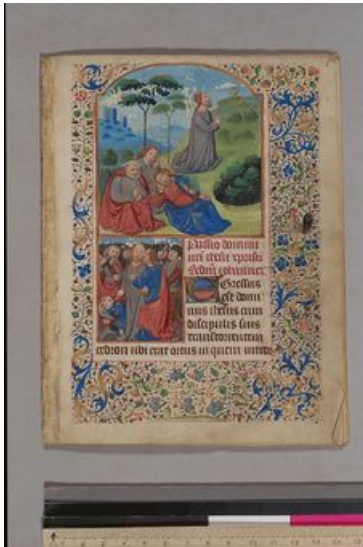 Passio domini
secundum iohannem
Egressus
est domi
nus ihesus cum
discipulis suis
trans torrentem
cedron ubi erat ortus in quem introi